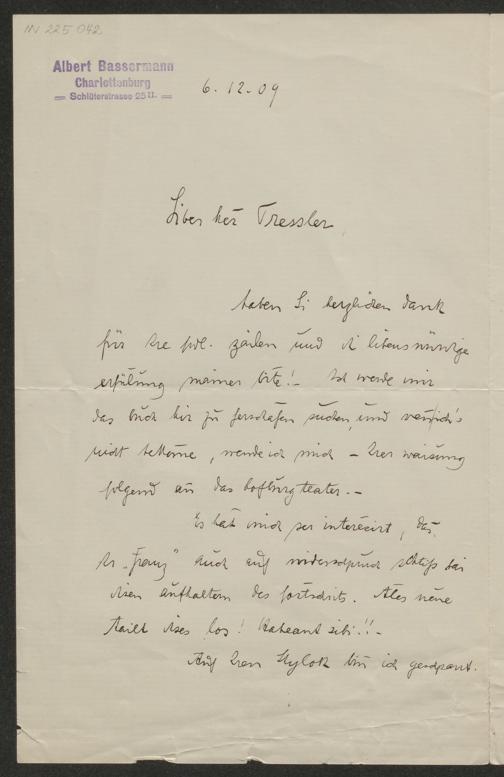 IN 225 042
Albert Bassermann
Charlottenburg
Schlüterstrasse 25 II.
6.12.09
Liber her Tressler
haben Si herzlichen dank
für ire frl. zailen und di libenswürdige
erfülung mainer bite! - Ich werde mir
das buch hir zu ferschafen suchen, und wen ich's
nicht bekome, wende ich mich - irer waisung
folgend an das hofburgteater. -
Es hat mich ser interesirt, das
ir "Franz" auch auf widerspruch bai
disen aufhaltern des fortschrits. Ales neue
tailt dises los! Habeant sibi!! -
Auf iren Shylok bin ich gespant.